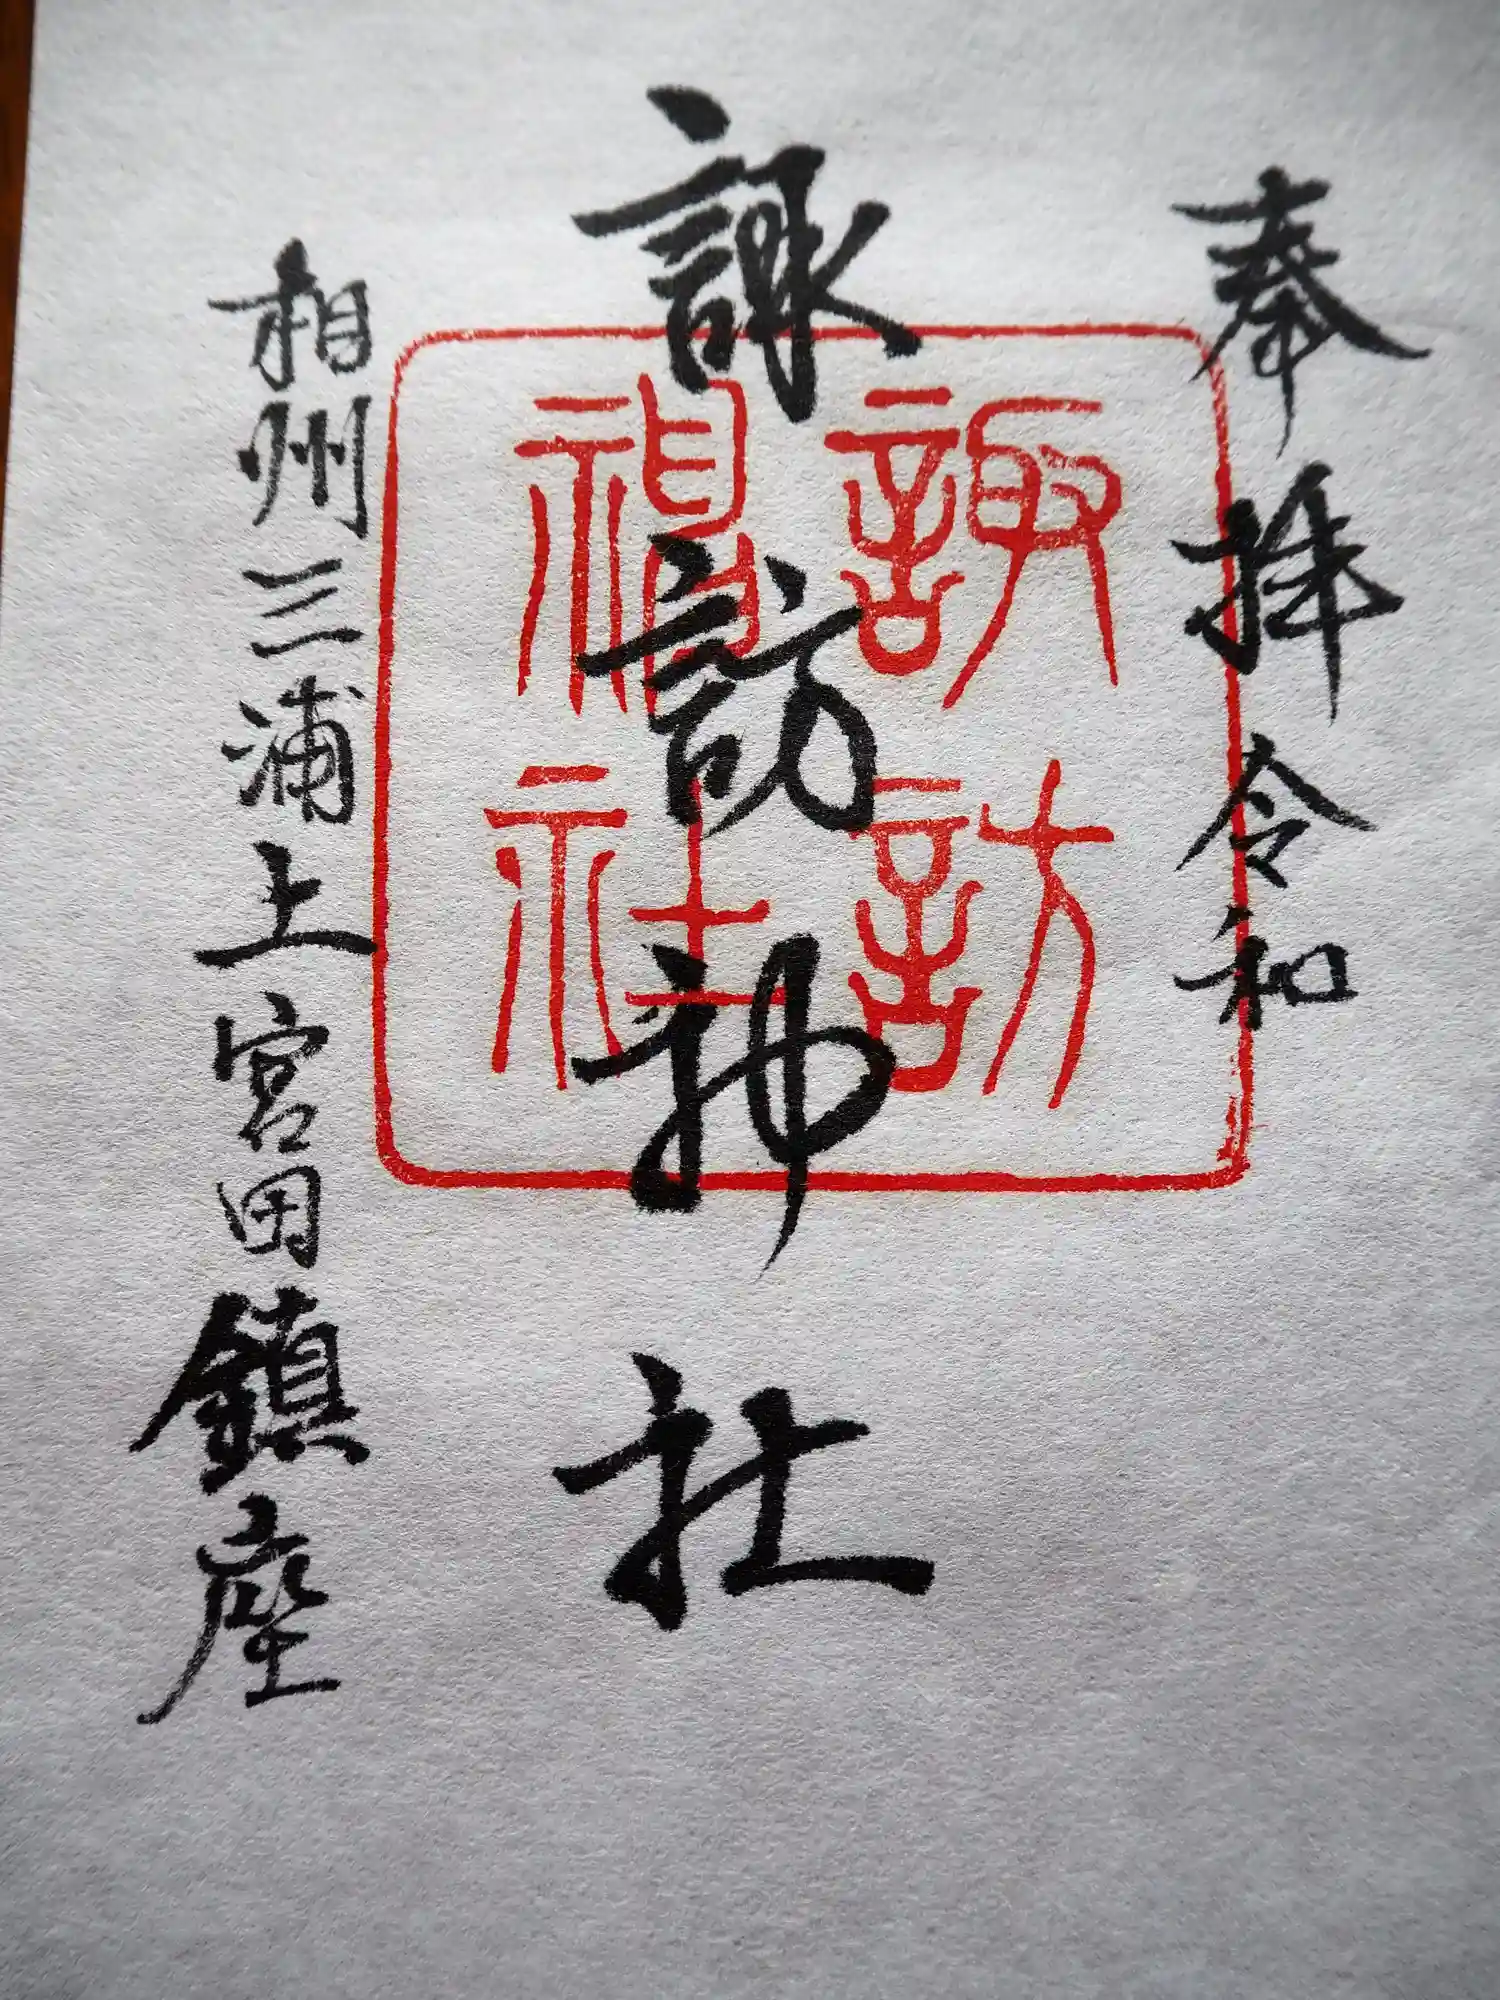 奉拝令和
諏訪神社
諏訪神社
相州三浦上宮田鎮座